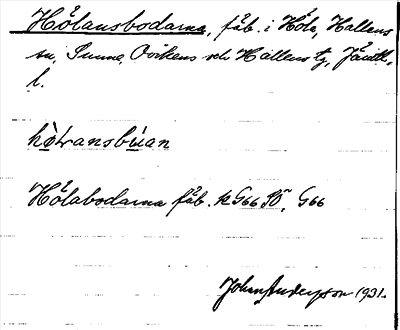 Hölansbodarna, fäb. i Höla, Hallens
sn, Sunne, Ovikens och Hallens tg, Jämtl.
l.
Hölabodarna fäb. k G66 SÖ, G66
John Anderson 1931.